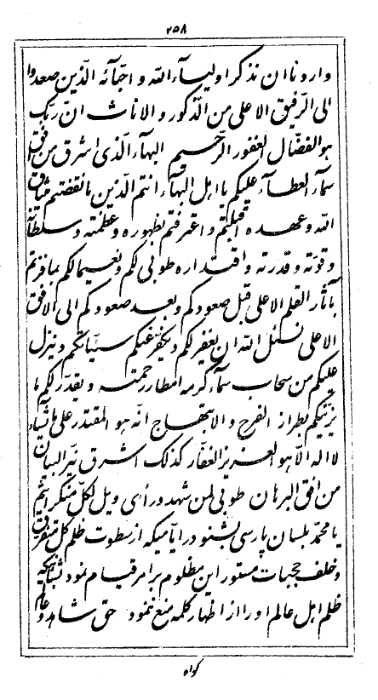 ۲۵۸
واردنا ان نذکر اولیآء اللّه و احبّآئه الّذین صعدوا
الی الرّفیق الاعلی من الذّکور و الاناث انّ ربّک
هو الفضّال الغفور الرّحیم البهآء الّذی اشرق من افق
سمآء العطآء علیکم یا اهل البهآء انتم الّذین ما نقضتم میثاق
اللّه و عهده اقبلتم و اعترفتم بظهوره و عظمته و سلطانه
و قوّته و قدرته و اقتداره طوبی لکم و نعیما لکم بما فزتم
بآثار القلم الاعلی قبل صعودکم و بعد صعودکم الی الافق
الاعلی نسئل اللّه ان یغفر لکم و یکفّر عنکم سیّئاتکم و ینزل
علیکم من سحاب سمآء کرمه امطار رحمته و یقدّر لکم ما
یزیّنکم بطراز الفرح و الابتهاج انّه هو المقتدر علی ما یشآء
لا اله الّا هو العزیز الغفّار کذلک اشرق نیّر البیان
من افق البرهان طوبی لمن شهد و رأی ویل لکلّ منکر اثیم
یا محمّد بلسان پارسی بشنو در ایّامیکه از سطوت ظلم کلّ متفرّق
و خلف حجبات مستور این مظلوم بر امر قیام نمود بشأنیکه
ظلم اهل عالم او را از اظهار کلمه منع ننمود حق شاهد و عالم
گواه